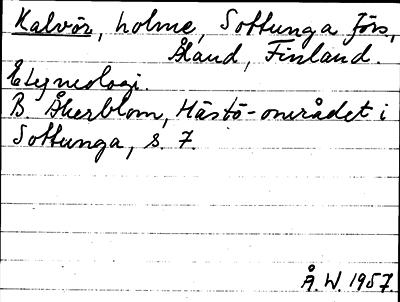 Kalvör, holme, Sottunga förs,
Åland, Finland.
Etymologi.
B. Åkerblom, Hästö-området i
Sottunga, s. 7.
Å. W. 1957.